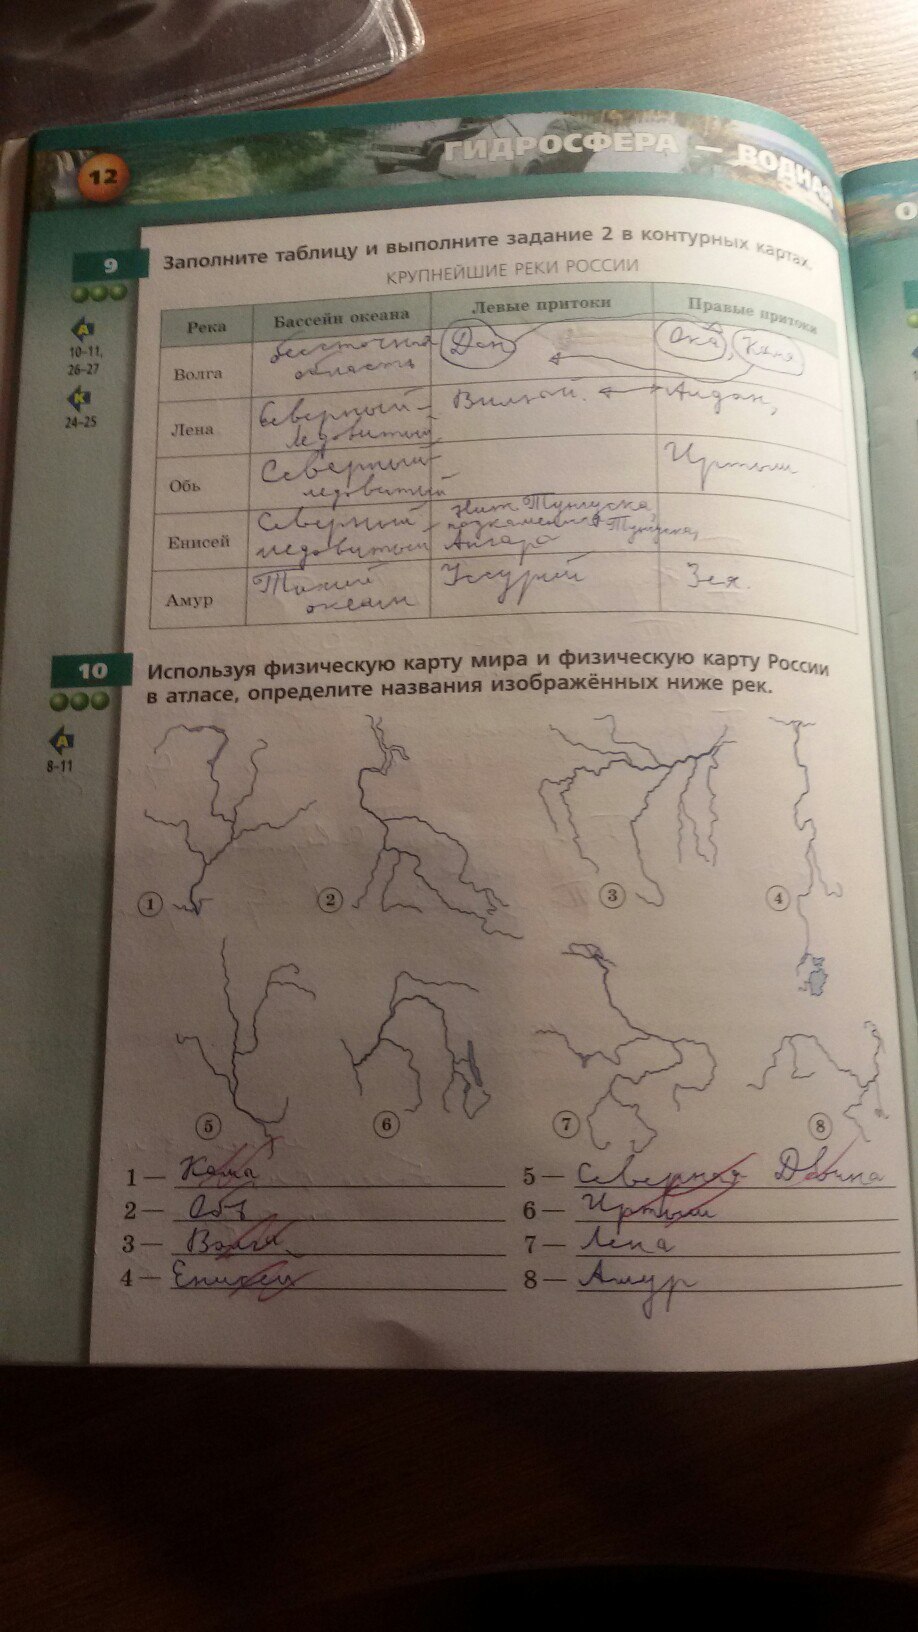 12
ГИДРОСФЕРА — ВОДНАЯ
О
9
Заполните таблицу и выполните задание 2 в контурных картах.
КРУПНЕЙШИЕ РЕКИ РОССИИ
А
10–11,
26–27
К
24–25
Река Бассейн океана Левые притоки Правые притоки
Волга бессточная область Дон Ока, Кама
Лена Северный-Ледовитый Вилюй. Алдан,
Обь Северный-ледовитый Иртыш
Енисей Северный-ледовитый Ниж. Тунгуска, Тунгуска, Ангара
Амур Тихий океан Уссурий Зея.
10
Используя физическую карту мира и физическую карту России
в атласе, определите названия изображённых ниже рек.
А
8–11
1 2 3 4
5 6 7 8
1 — Кама
2 — Обь
3 — Волга
4 — Енисей
5 — Северная Двина
6 — Иртыш
7 — Лена
8 — Амур